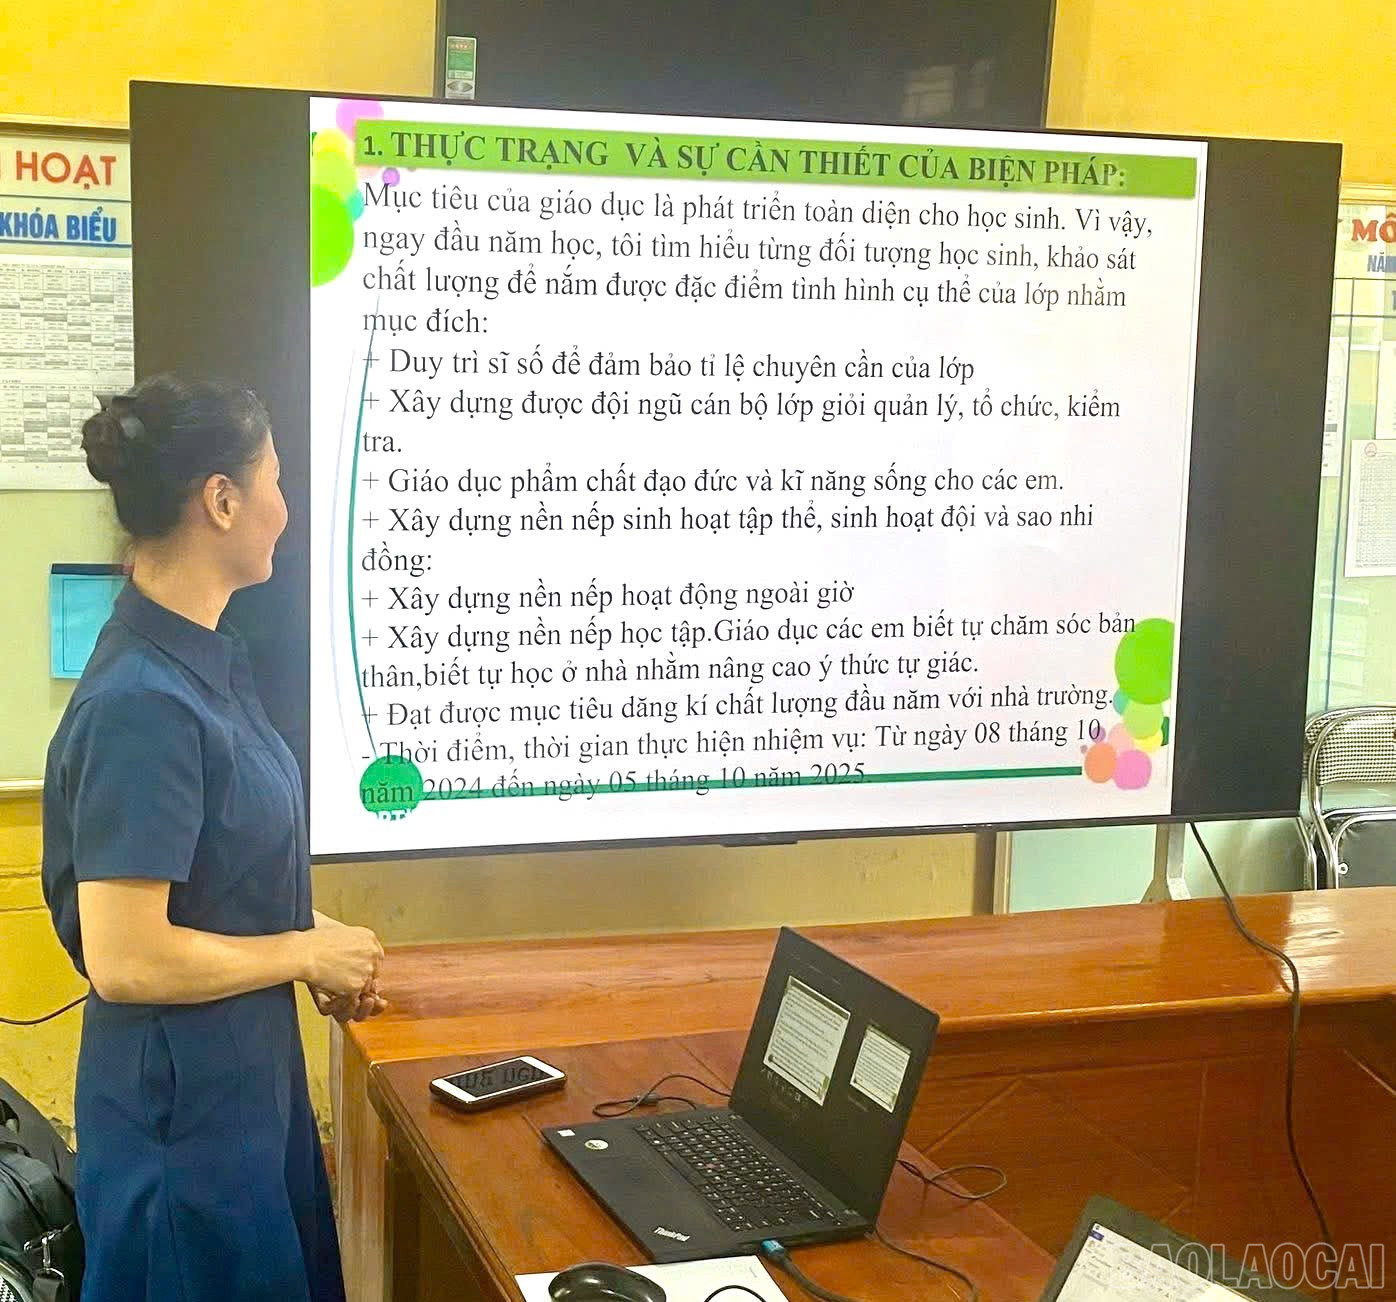 HOẠT
KHÓA BIỂU
1. THỰC TRẠNG VÀ SỰ CẦN THIẾT CỦA BIỆN PHÁP:
Mục tiêu của giáo dục là phát triển toàn diện cho học sinh. Vì vậy,
ngay đầu năm học, tôi tìm hiểu từng đối tượng học sinh, khảo sát
chất lượng để nắm được đặc điểm tình hình cụ thể của lớp nhằm
mục đích:
+ Duy trì sĩ số để đảm bảo tỉ lệ chuyên cần của lớp
+ Xây dựng được đội ngũ cán bộ lớp giỏi quản lý, tổ chức, kiểm
tra.
+ Giáo dục phẩm chất đạo đức và kĩ năng sống cho các em.
+ Xây dựng nền nếp sinh hoạt tập thể, sinh hoạt đội và sao nhi
đồng:
+ Xây dựng nền nếp hoạt động ngoài giờ
+ Xây dựng nền nếp học tập.Giáo dục các em biết tự chăm sóc bản
thân,biết tự học ở nhà nhằm nâng cao ý thức tự giác.
+ Đạt được mục tiêu dăng kí chất lượng đầu năm với nhà trường.
- Thời điểm, thời gian thực hiện nhiệm vụ: Từ ngày 08 tháng 10
năm 2024 đến ngày 05 tháng 10 năm 2025.
ThinkPad
BAOLAOCAI